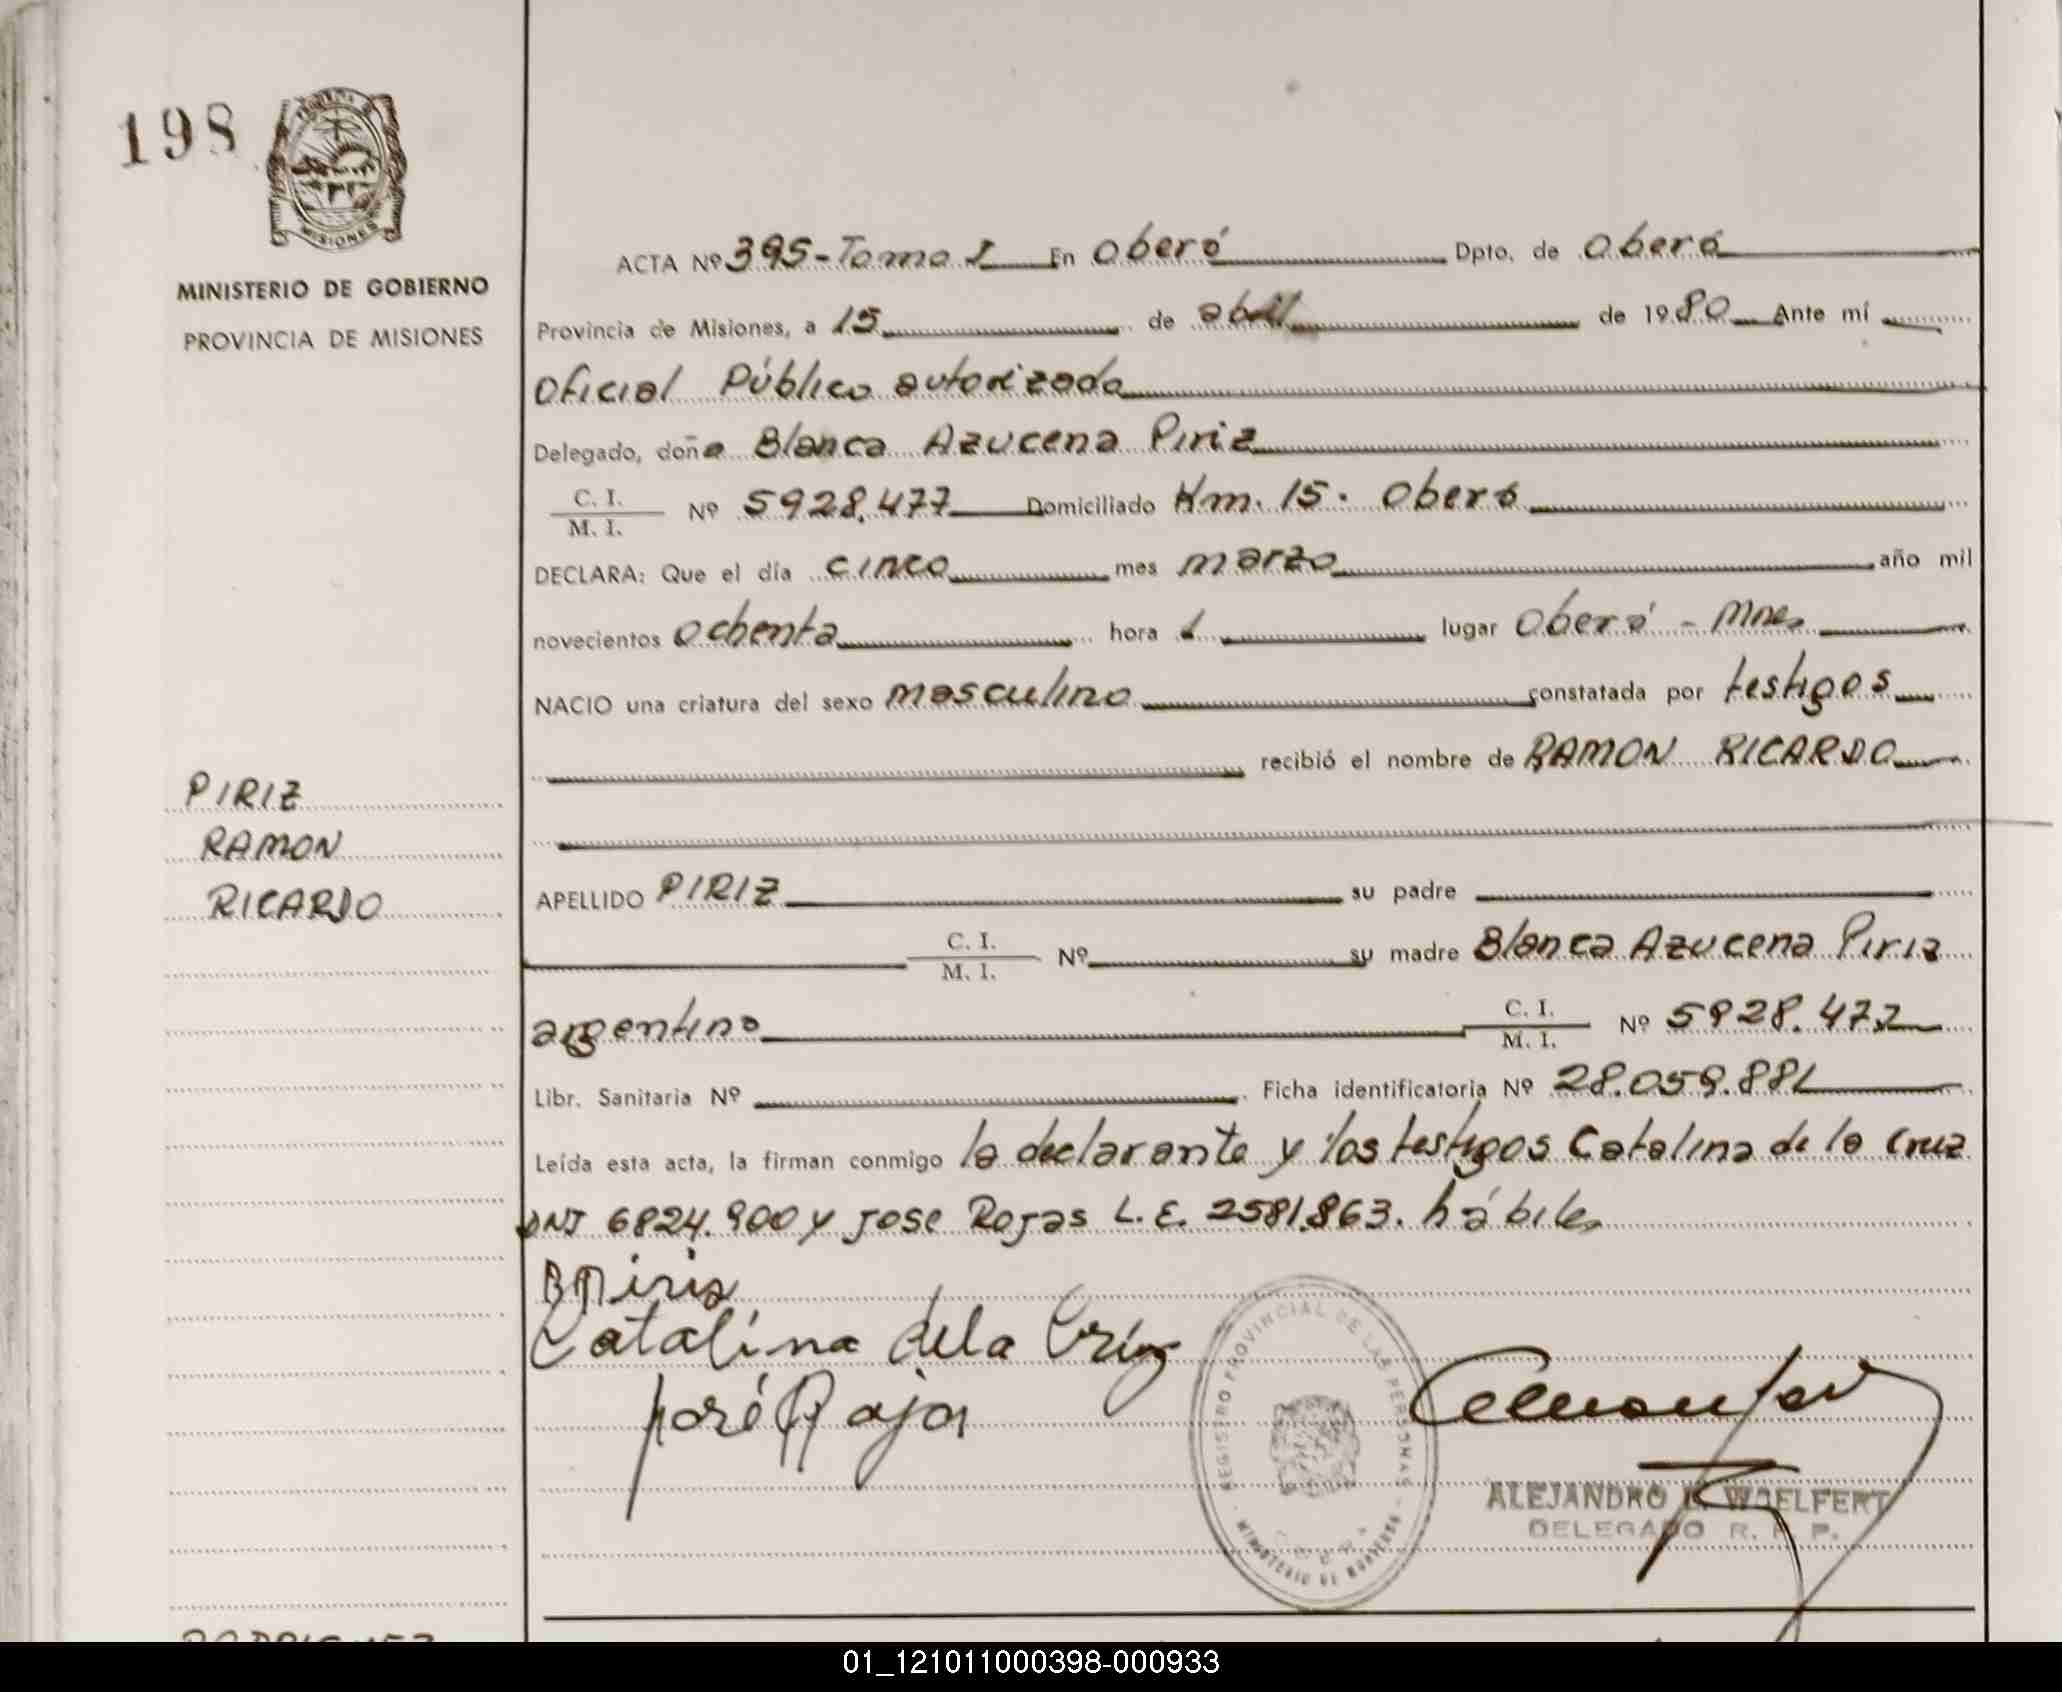 198
MISIONES
MINISTERIO DE GOBIERNO
PROVINCIA DE MISIONES
PIRIZ
RAMON
RICARDO
ACTA Nº 395-Tomo I En Oberá Dpto. de Oberá
Provincia de Misiones, a 15 de abril de 1980 Ante mí
Oficial Público autorizado
Delegado, doña Blanca Azucena Piriz
C. I.
M. I. Nº 5928.477 Domiciliado Km. 15. Oberá
DECLARA: Que el día cinco mes marzo año mil
novecientos ochenta hora 1 lugar Oberá - Mnes
NACIO una criatura del sexo masculino constatada por testigos
recibió el nombre de RAMON RICARDO
APELLIDO PIRIZ su padre
C. I.
M. I. Nº su madre Blanca Azucena Piriz
argentino C. I.
M. I. Nº 5928.477
Libr. Sanitaria Nº Ficha identificatoria Nº 28.059.881
Leída esta acta, la firman conmigo la declarante y los testigos Catalina de la Cruz
DNI 6824.900 y Jose Rojas L.E. 2581.863. hábiles
Catalina dela Cruz
José Rojas
REGISTRO PROVINCIAL DE LAS PERSONAS
MINISTERIO DE GOBIERNO
ALEJANDRO WOELFERT
DELEGADO R. P. P.
01_121011000398-000933